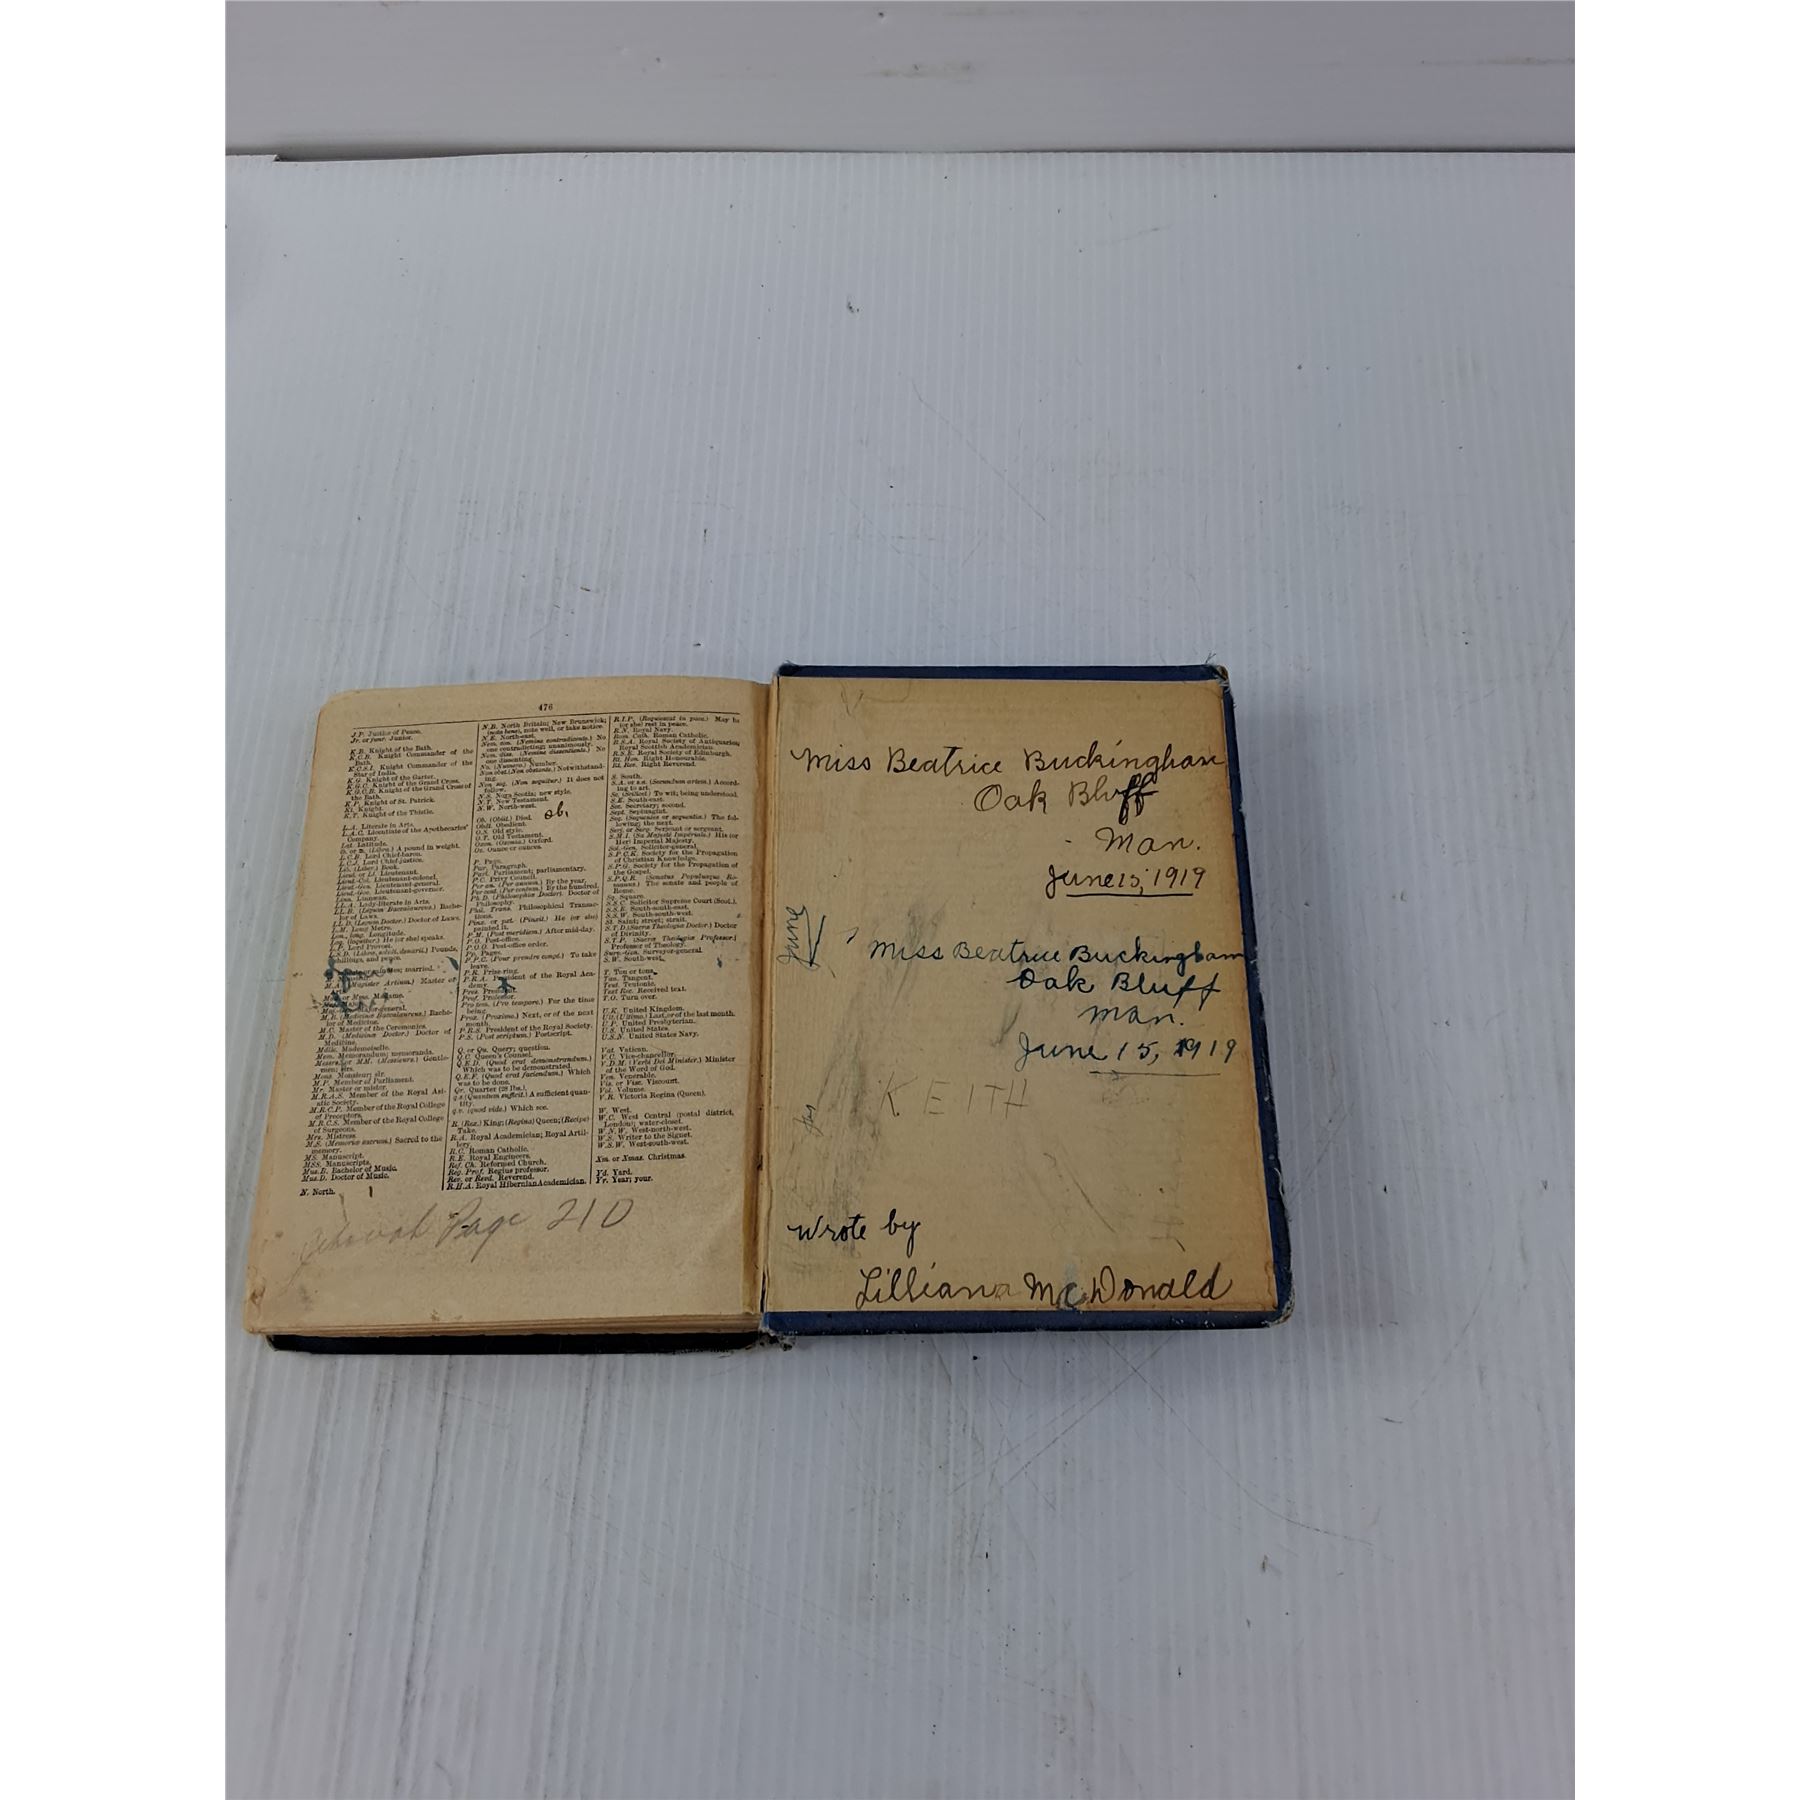 476
J.P. Justice of Peace.
Jr. or junr. Junior.
K.B. Knight of the Bath.
K.C.B. Knight Commander of the
Bath.
K.C.S.I. Knight Commander of the
Star of India.
K.G. Knight of the Garter.
K.G.C. Knight of the Grand Cross.
K.G.C.B. Knight of the Grand Cross of
the Bath.
K.P. Knight of St. Patrick.
Kt. Knight.
K.T. Knight of the Thistle.
L.A. Literate in Arts.
L.A.C. Licentiate of the Apothecaries'
Company.
Lat. Latitude.
lb. or ℔. (Libra.) A pound in weight.
L.C.B. Lord Chief-baron.
L.C.J. Lord Chief-justice.
Lib. (Liber.) Book.
Lieut. or Lt. Lieutenant.
Lieut.-Col. Lieutenant-colonel.
Lieut.-Gen. Lieutenant-general.
Lieut.-Gov. Lieutenant-governor.
Linn. Linnæan.
LL.A. Lady-literate in Arts.
LL.B. (Legum Baccalaureus.) Bache-
lor of Laws.
LL.D. (Legum Doctor.) Doctor of Laws.
L.M. Long Metre.
Lon., long. Longitude.
Loq. (loquitur.) He (or she) speaks.
L.P. Lord Provost.
L.S.D. (Libræ, solidi, denarii.) Pounds,
shillings, and pence.
married.
M.A. (Magister Artium.) Master of
Arts.
Mad. or Mdm. Madame.
Maj.-Gen. Major-general.
M.B. (Medicinæ Baccalaureus.) Bache-
lor of Medicine.
M.C. Master of the Ceremonies.
M.D. (Medicinæ Doctor.) Doctor of
Medicine.
Mdlle. Mademoiselle.
Mem. Memorandum; memoranda.
Messrs. or MM. (Messieurs.) Gentle-
men; Sirs.
Mons. Monsieur; sir.
M.P. Member of Parliament.
Mr. Master or mister.
M.R.A.S. Member of the Royal Asi-
atic Society.
M.R.C.P. Member of the Royal College
of Preceptors.
M.R.C.S. Member of the Royal College
of Surgeons.
Mrs. Mistress.
M.S. (Memoriæ sacrum.) Sacred to the
memory.
MS. Manuscript.
MSS. Manuscripts.
Mus.B. Bachelor of Music.
Mus.D. Doctor of Music.
N. North.
N.B. North Britain; New Brunswick;
(nota bene), note well, or take notice.
N.E. North-east.
Nem. con. (Nemine contradicente.) No
one contradicting; unanimously.
Nem. diss. (Nemine dissentiente.) No
one dissenting.
No. (Numero.) Number.
Non obst. (Non obstante.) Notwithstand-
ing.
Non seq. (Non sequitur.) It does not
follow.
N.S. Nova Scotia; new style.
N.T. New Testament.
N.W. North-west.
Ob. (Obiit.) Died.
ob.
Obdt. Obedient.
O.S. Old style.
O.T. Old Testament.
Oxon. (Oxonia.) Oxford.
Oz. Ounce or ounces.
P. Page.
Par. Paragraph.
Parl. Parliament; parliamentary.
P.C. Privy Council.
Per an. (Per annum.) By the year.
Per cent. (Per centum.) By the hundred.
Ph.D. (Philosophiæ Doctor.) Doctor of
Philosophy.
Phil. Trans. Philosophical Transac-
tions.
Pinx. or pxt. (Pinxit.) He (or she)
painted it.
P.M. (Post meridiem.) After mid-day.
P.O. Post-office.
P.O.O. Post-office order.
Pp. Pages.
P.P.C. (Pour prendre congé.) To take
leave.
P.R. Prize-ring.
P.R.A. President of the Royal Aca-
demy.
Pres. President.
Prof. Professor.
Pro tem. (Pro tempore.) For the time
being.
Prox. (Proximo.) Next, or of the next
month.
P.R.S. President of the Royal Society.
P.S. (Post scriptum.) Postscript.
Q. or Qu. Query; question.
Q.C. Queen's Counsel.
Q.E.D. (Quod erat demonstrandum.)
Which was to be demonstrated.
Q.E.F. (Quod erat faciendum.) Which
was to be done.
Qr. Quarter (28 lbs.).
q.s. (Quantum sufficit.) A sufficient quan-
tity.
q.v. (quod vide.) Which see.
R. (Rex.) King; (Regina) Queen; (Recipe)
Take.
R.A. Royal Academician; Royal Artil-
lery.
R.C. Roman Catholic.
R.E. Royal Engineers.
Ref. Ch. Reformed Church.
Reg. Prof. Regius professor.
Rev. or Revd. Reverend.
R.H.A. Royal Hibernian Academician.
R.I.P. (Requiescat in pace.) May he
(or she) rest in peace.
R.N. Royal Navy.
Rom. Cath. Roman Catholic.
R.S.A. Royal Society of Antiquaries;
Royal Scottish Academician.
R.S.E. Royal Society of Edinburgh.
Rt. Hon. Right Honourable.
Rt. Rev. Right Reverend.
S. South.
S.A. or s.a. (Secundum artem.) Accord-
ing to art.
Sc. (Scilicet.) To wit; being understood.
S.E. South-east.
Sec. Secretary; second.
Sept. Septuagint.
Seq. (Sequentes or sequentia.) The fol-
lowing; the next.
Serj. or Serg. Serjeant or sergeant.
S.M.I. (Sa Majesté Impériale.) His (or
Her) Imperial Majesty.
Sol.-Gen. Solicitor-general.
S.P.C.K. Society for the Propagation
of Christian Knowledge.
S.P.G. Society for the Propagation of
the Gospel.
S.P.Q.R. (Senatus Populusque Ro-
manus.) The senate and people of
Rome.
Sq. Square.
S.S.C. Solicitor Supreme Court (Scot.).
S.S.E. South-south-east.
S.S.W. South-south-west.
St. Saint; street; strait.
S.T.D. (Sacræ Theologiæ Doctor.) Doctor
of Divinity.
S.T.P. (Sacræ Theologiæ Professor.)
Professor of Theology.
Surv.-Gen. Surveyor-general.
S.W. South-west.
T. Ton or tons.
Tan. Tangent.
Teut. Teutonic.
Text Rec. Received text.
T.O. Turn over.
U.K. United Kingdom.
Ult. (Ultimo.) Last, or of the last month.
U.P. United Presbyterian.
U.S. United States.
U.S.N. United States Navy.
Vat. Vatican.
V.C. Vice-chancellor.
V.D.M. (Verbi Dei Minister.) Minister
of the Word of God.
Ven. Venerable.
Vis. or Visc. Viscount.
Vol. Volume.
V.R. Victoria Regina (Queen).
W. West.
W.C. West Central (postal district,
London); water-closet.
W.N.W. West-north-west.
W.S. Writer to the Signet.
W.S.W. West-south-west.
Xm. or Xmas. Christmas.
Yd. Yard.
Yr. Year; your.
Page 210
Miss Beatrice Buckingham
Oak Bluff
Man.
June 15, 1919
June
Miss Beatrice Buckingham
Oak Bluff
Man.
June 15, 1919
KEITH
Wrote by
Lillian McDonald